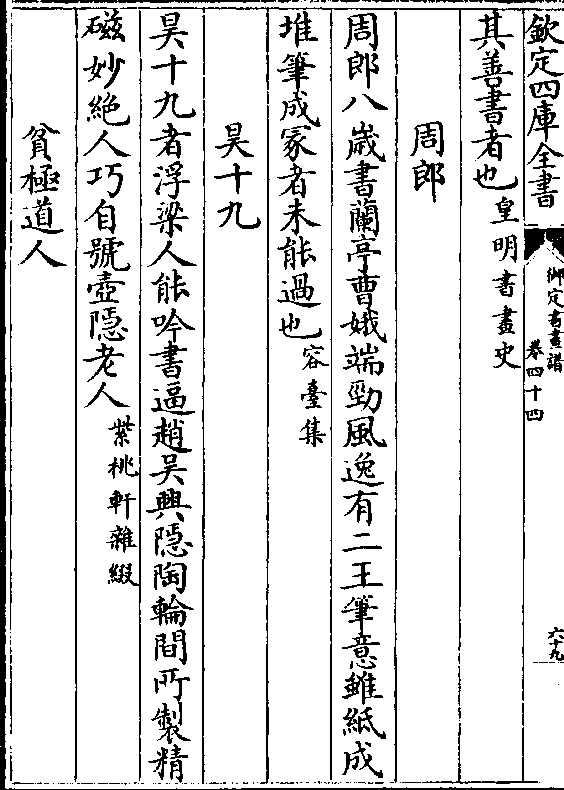 欽定四庫全書
御定書畫譜
卷四十四
六十九
其善書者也皇明書畫史
周郎
周郎八歲書蘭亭曹娥端勁風逸有二王筆意雖紙成
堆筆成冢者未能過也容臺集
昊十九
昊十九者浮梁人能吟書逼趙吳興隱陶輪間所製精
磁妙絕人巧自號壺隱老人紫桃軒雜綴
貧極道人